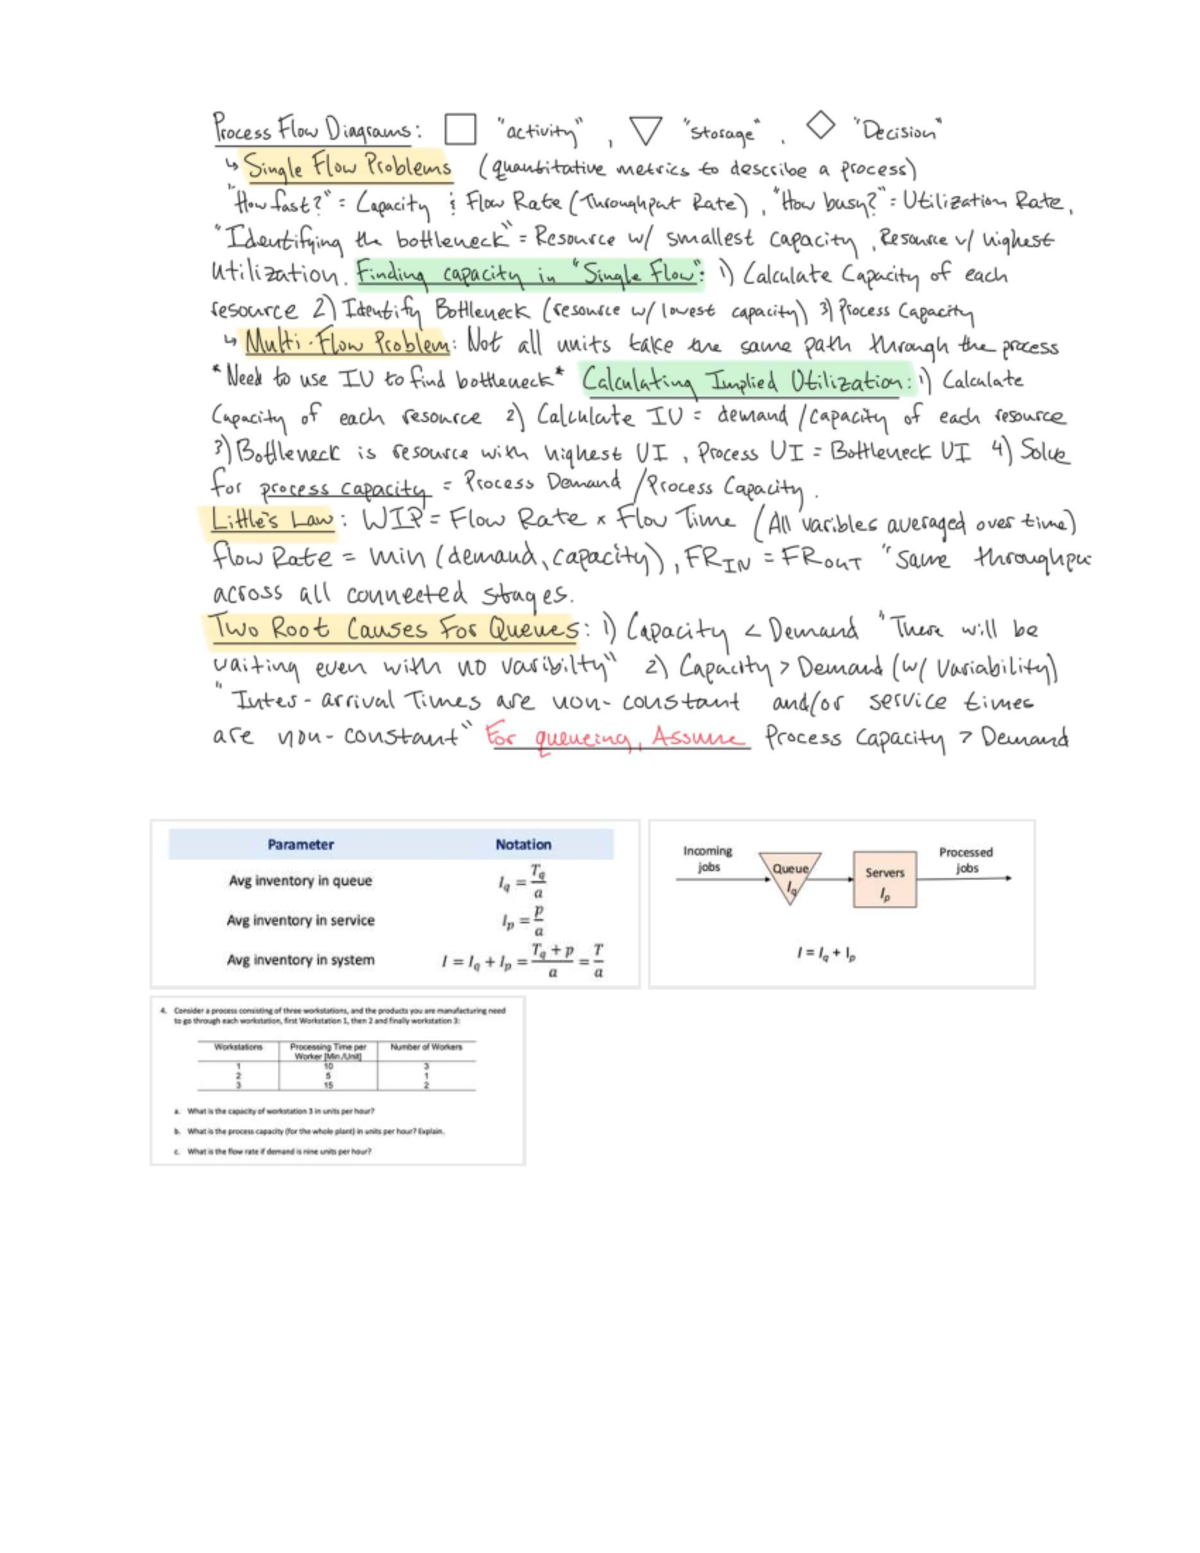 Process Flow Diagrams: "activity" , "storage" , "Decision"
↳ Single Flow Problems (quantitative metrics to describe a process)
"How fast?" = Capacity & Flow Rate (Throughput Rate) , "How busy?" = Utilization Rate,
"Identifying the bottleneck" = Resource w/ smallest capacity , Resource w/ highest
Utilization. Finding capacity in "Single Flow": 1) Calculate Capacity of each
resource 2) Identify Bottleneck (resource w/ lowest capacity) 3) Process Capacity
↳ Multi-Flow Problem: Not all units take the same path through the process
*Need to use IU to find bottleneck* Calculating Implied Utilization: 1) Calculate
Capacity of each resource 2) Calculate IU = demand/capacity of each resource
3) Bottleneck is resource with highest UI , Process UI = Bottleneck UI 4) Solve
for process capacity = Process Demand / Process Capacity.
Little's Law: WIP = Flow Rate × Flow Time (All varibles averaged over time)
flow Rate = min (demand, capacity) , FR IN = FR OUT "Same throughpu
across all connected stages.
Two Root Causes For Queues: 1) Capacity < Demand "There will be
waiting even with no varibilty" 2) Capacity > Demand (w/ Variability)
"Inter-arrival Times are non-constant and/or service times
are non-constant" For queueing, Assume Process Capacity > Demand
Parameter Notation
Avg inventory in queue I_q = T_q / a
Avg inventory in service I_p = p / a
Avg inventory in system I = I_q + I_p = (T_q + p) / a = T / a
Incoming jobs Queue I_q Servers I_p Processed jobs
I = I_q + I_p
4. Consider a process consisting of three workstations, and the products you are manufacturing need
to go through each workstation, first Workstation 1, then 2 and finally workstation 3:
Workstations Processing Time per Worker [Min./Unit] Number of Workers
1 10 3
2 5 1
3 15 2
a. What is the capacity of workstation 3 in units per hour?
b. What is the process capacity (for the whole plant) in units per hour? Explain.
c. What is the flow rate if demand is nine units per hour?